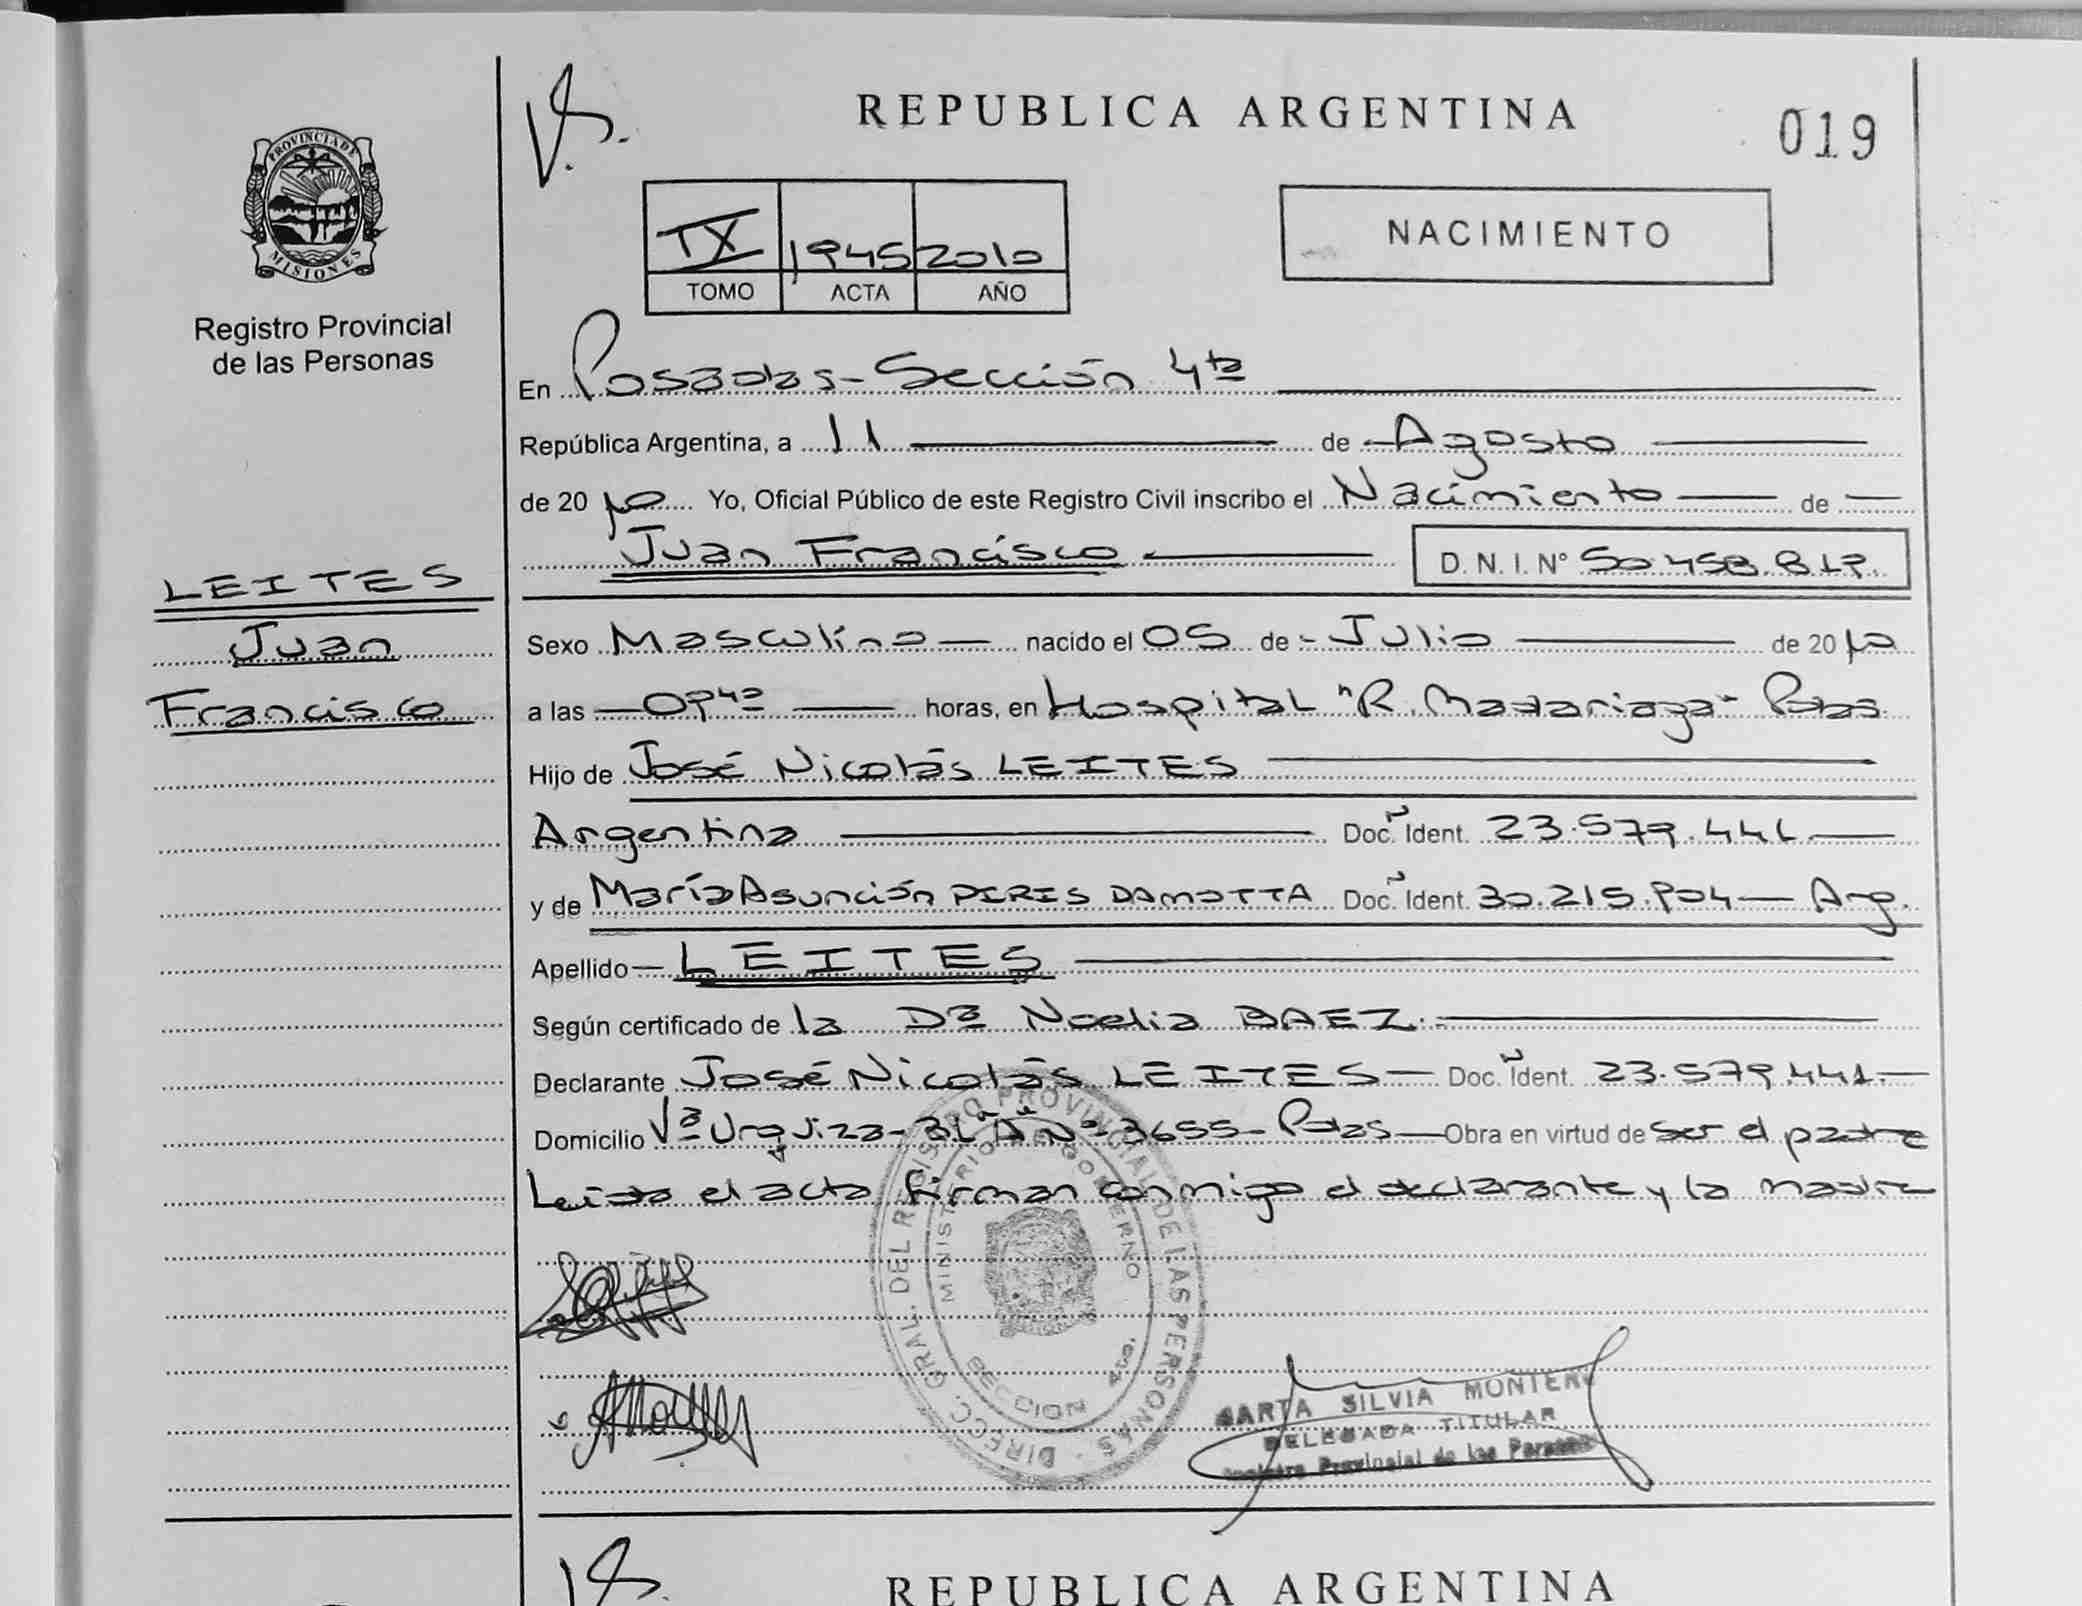 REPUBLICA ARGENTINA
019
PROVINCIA DE
MISIONES
Registro Provincial
de las Personas
TX 1945 2010
TOMO ACTA AÑO
NACIMIENTO
En Posadas - Sección 4ta
República Argentina, a 11 de Agosto
de 2010 Yo, Oficial Público de este Registro Civil inscribo el Nacimiento de
Juan Francisco D. N. I. Nº 50.458.817.
LEITES
Juan
Francisco
Sexo Masculino nacido el 05 de Julio de 2010
a las 09⁴⁰ horas, en Hospital "R. Madariaga" Pdas
Hijo de José Nicolás LEITES
Argentina Doc. Ident. 23.579.441
y de María Asunción PIRIS DAMOTTA Doc. Ident. 30.215.904 Arg.
Apellido LEITES
Según certificado de la Dra Noelia BAEZ.
Declarante José Nicolás LEITES Doc. Ident. 23.579.441
Domicilio Vª Urquiza Nº 3655 - Pdas Obra en virtud de ser el padre
Leida el acta firman conmigo el declarante y la madre
DIRECC. GRAL. DEL REGISTRO PROVINCIAL DE LAS PERSONAS
MINISTERIO DE GOBIERNO
SECCION 4ta.
MARTA SILVIA MONTERO
DELEGADA TITULAR
Registro Provincial de las Personas
REPUBLICA ARGENTINA